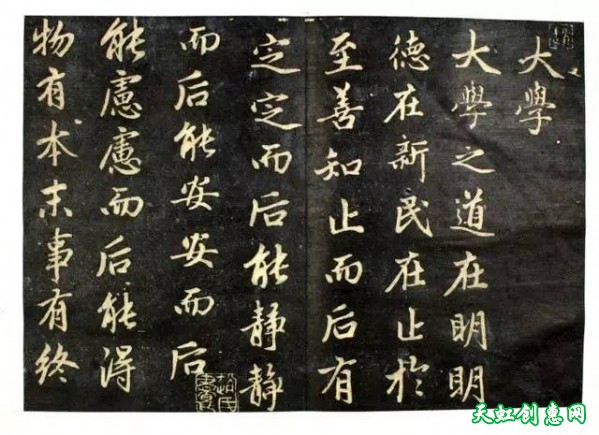 大學
大學之道在明明
德在新民在止於
至善知止而后有
定定而后能静静
而后能安安而后
能慮慮而后能淂
物有本末事有終
天虹创惠网